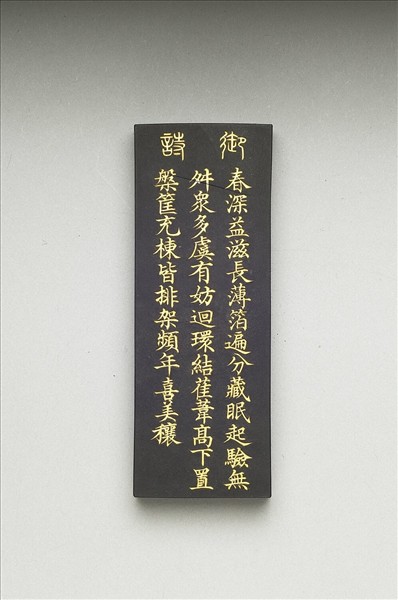 御詩
春深益滋長薄箔遍分藏眠起驗無
舛衆多虞有妨迴環結萑葦髙下置
槃筐充棟皆排架頻年喜美穰